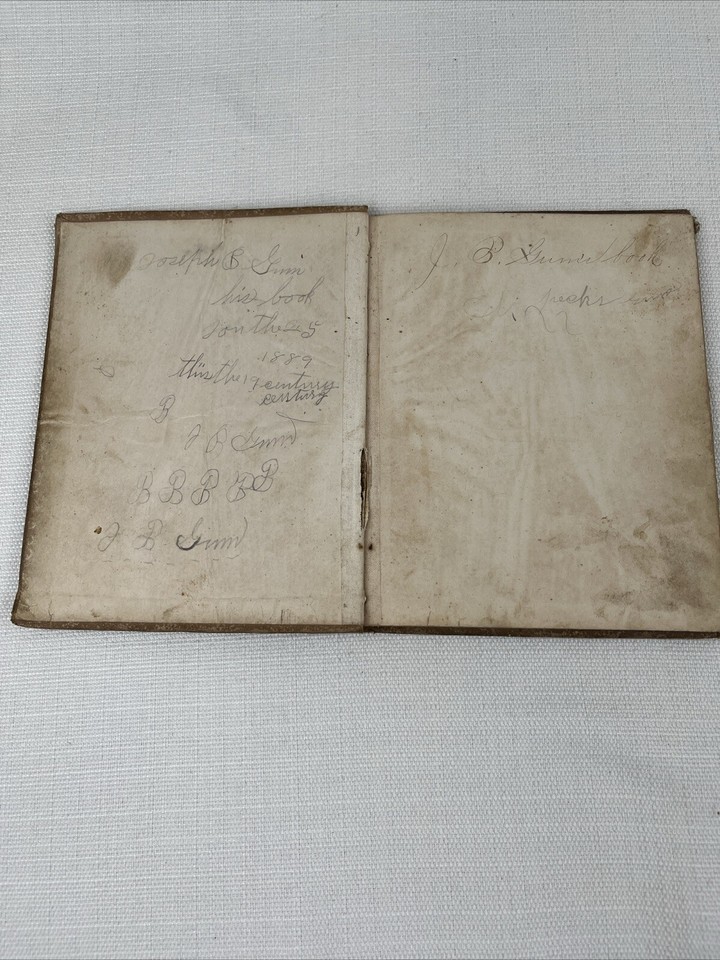 Joseph B. Gunn
his book
on the 25
1889
this the 19 century
century
B
J B Gunn
B B B B B
J B Gunn
J. B. book